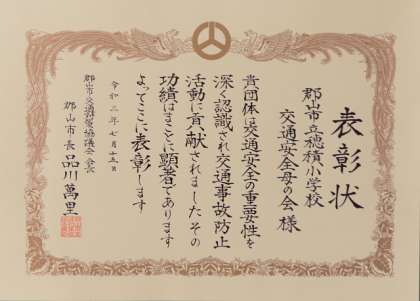 表彰状
郡山市立穂積小学校
交通安全母の会 様
貴団体は交通安全の重要性を
深く認識され交通事故防止
活動に貢献されました その
功績はまことに顕著であります
よってここに表彰します
令和三年七月十五日
郡山市交通対策協議会 会長
郡山市長 品川萬里